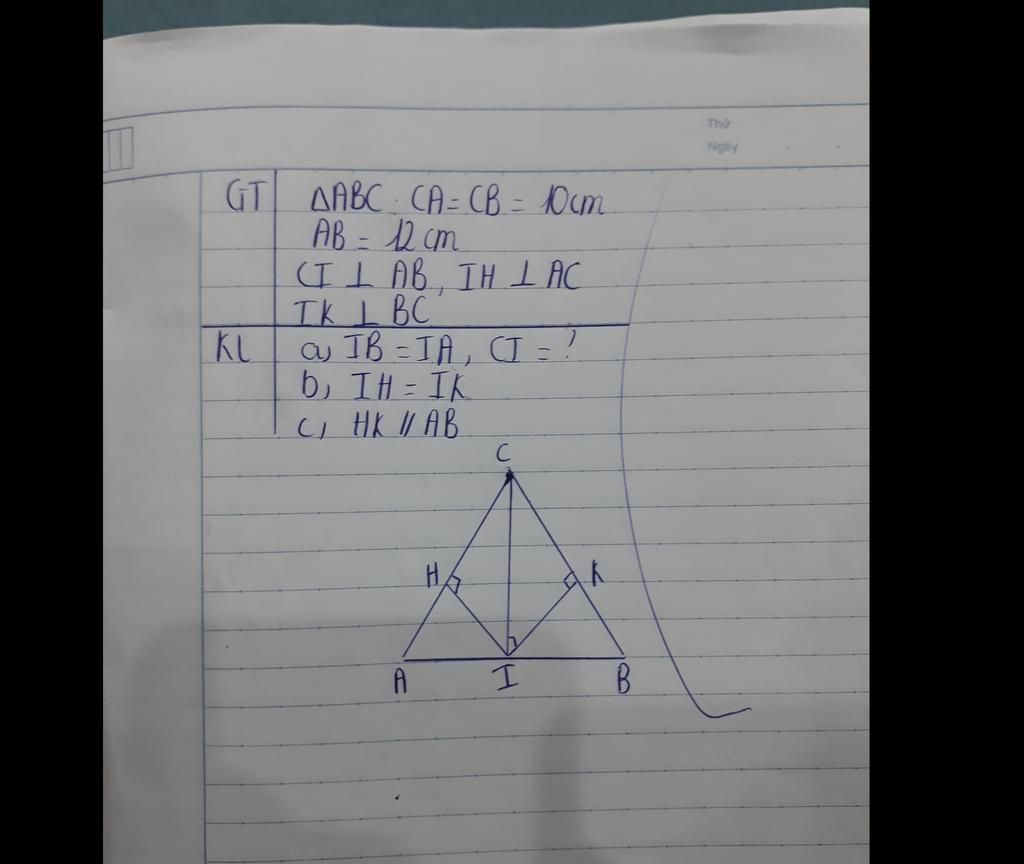 Thứ
Ngày
GT ΔABC: CA = CB = 10cm
AB = 12 cm
CI ⊥ AB, IH ⊥ AC
IK ⊥ BC
KL a, IB = IA, CI = ?
b, IH = IK
c, HK // AB
C
H K
A I B